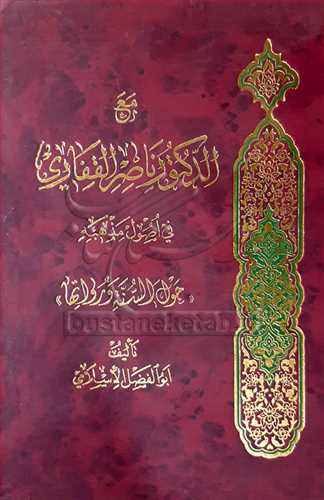 مع
الدكتور ناصر القفاري
في أصول مذهبه
«حول السنة ورواتها»
bustaneketab
تأليف
ابو الفضل الإسلامي